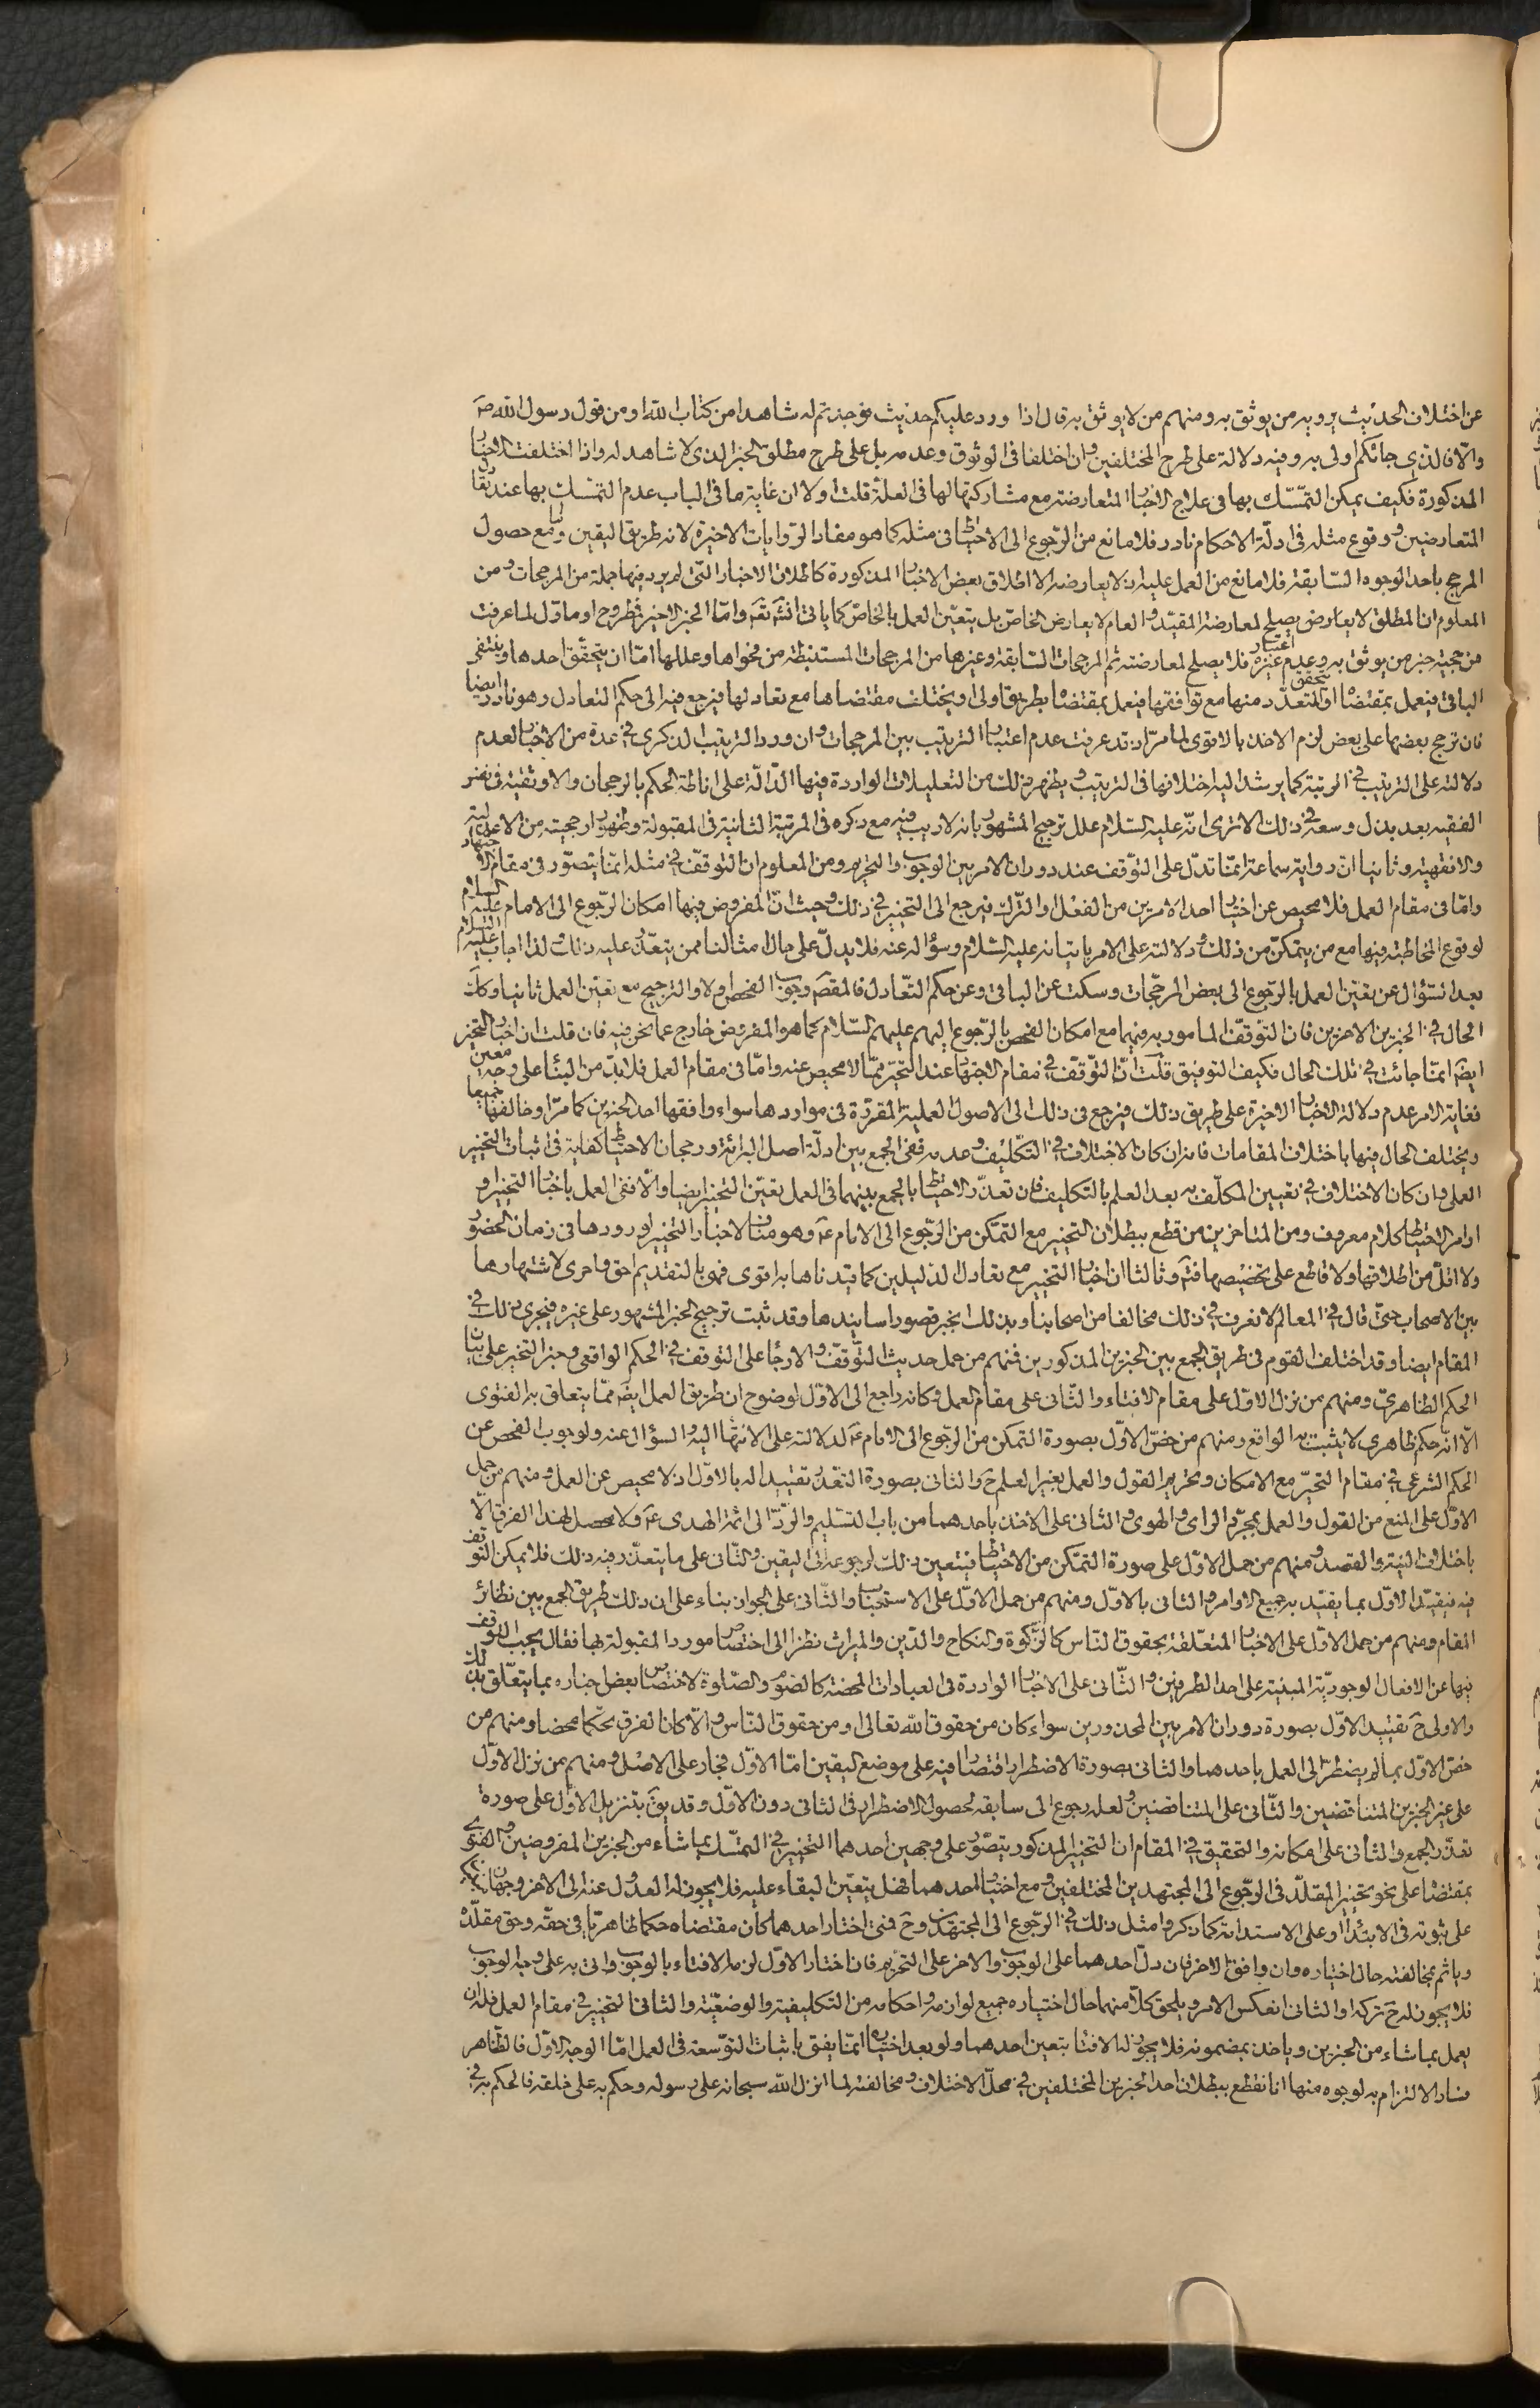 عن اختلاف الحديث يرويه من يوثق به ومنهم من لا يوثق به قال اذا ورد عليكم حديث فوجدتم له شاهدا من كتاب الله او من قول رسول الله صَ
والّا فالذي جائكم اولى به وفيه دلالة على طرح المختلفين وان اختلفا فى الوثوق وعدمه بل على طرح مطلق الخبر الذى لا شاهد له واذا اختلفت الاخبار
المذكورة فكيف يمكن التمسّك بها فى علاج الاخبار المتعارضة مع مشاركتها لها فى العلّة قلت اولا ان غاية ما فى الباب عدم التمسّك بها عند تكافؤ
المتعارضين ووقوع مثله فى ادلّة الاحكام نادر فلا مانع من الرّجوع الى الاحتياط فى مثله كما هو مفاد الرّوايات الاخيرة لانه طريق اليقين ومع حصول
المرجح باحد الوجوه السّابقة فلا مانع من العمل عليه اذ لا يعارضه الا اطلاق بعض الاخبار المذكورة كاطلاق الاخبار التّى لم يرد فيها جملة من المرجحات ومن
المعلوم ان المطلق لا يصلح لمعارضة المقيّد والعام لا يعارض الخاصّ بل يتعيّن العمل بالخاصّ كما ياتى انشَه تعَ وامّا الخبر الاخير فمطروح او ماوّل لما عرفت
من حجية خبر من يوثق به وعدم اعتبار غيره فلا يصلح لمعارضته ثم المرجحات السّابقة وغيرها من المرجحات المستنبطة من فحواها وعللها امّا ان يتحقّق احدها وينتفى
الباقى فيعمل بمقتضاه او يتحقق المتعدّد منها مع توافقها فيعمل بمقتضاها بطريق اولى او يختلف مقتضاها مع تعادلها فيرجع فيه الى حكم التعادل وهو نادر ايضا
فان ترجح بعضها على بعض لزم الاخذ بالاقوى لما مرّ اذ قد عرفت عدم اعتبار الترتيب بين المرجحات وان ورد الترتيب الذكرى فى عدة من الاخبار لعدم
دلالته على الترتيب فى الرتبة كما يرشد اليه اختلافها فى الترتيب ويظهر ذلك من التعليلات الواردة فيها الدّالّة على اناطة الحكم بالرجحان والاوثقية فى نظر
الفقيه بعد بذل وسعه فى ذلك الا ترى انّه عليه السّلام علل ترجيح المشهور بانه لا ريب فيه مع ذكره فى المرتبة الثانية فى المقبولة وظهور ارجحيته من الاعدلية
والافقهية وثانيا انّ رواية سماعة انمّا تدلّ على التوّقف عند دوران الامر بين الوجوب والتحريم ومن المعلوم ان التوقفّ فى مثله انمّا يتصوّر فى مقام الاجتهاد
وامّا فى مقام العمل فلا محيص عن اختيار احد الامرين من الفعل او التّرك فيرجع الى التخيير فى ذلك وحيث انّ المفروض فيها امكان الرّجوع الى الامام عليه السلام
لوقوع المخاطبة فيها مع من يتمكّن من ذلك ودلالته على الامر باتيانه عليه السّلام وسؤاله عنه فلا يدلّ على حال امثالنا ممن يتعذّر عليه ذلك ولذا اجاب عليه السّلام
بعد السّؤال عن تعيّن العمل بالرجوع الى بعض المرجّحات وسكت عن الباقى وعن حكم التّعادل فالمقصَ وجوب الفحص اولا والترجيح مع تعيّن العمل ثانيا وكك
الحال فى الخبرين الاخرين فان التوقفّ المامور به فيهما مع امكان الفحص بالرّجوع اليهم عليهم السّلام كما هو المفروض خارج عما نحن فيه فان قلت ان اخبار التخيير
ايضَ انمّا جائت فى تلك الحال فكيف التوفيق قلت انّ التوّقف فى مقام الاجتهاد عند التحيّر ممّا لا محيص عنه وامّا فى مقام العمل فلا بدّ من البناء على وجه معين
فغاية الامر عدم دلالة الاخبار الاخيرة على طريق ذلك فيرجع فى ذلك الى الاصول العملية المقرّرة فى مواردها سواء وافقها احد الخبرين كما مرّ او خالفها جميعا
ويختلف الحال فيها باختلاف المقامات فانه ان كان الاختلاف فى التكليف وعدمه ففى الجمع بين ادلّة اصل البرائة ورجحان الاحتياط كفاية فى اثبات التخيير
العملى وان كان الاختلاف فى تعيين المكلّف به بعد العلم بالتكليف فان تعذّر الاحتياط بالجمع بينهما فى العمل تعيّن التخيير ايضا والّا ففى العمل باخبار التخيير و
اوامر الاحتياط كلام معروف ومن المتاخرين من قطع ببطلان التخيير مع التمّكن من الرّجوع الى الامام عَ وهو مناف لاخبار التخيير لورودها فى زمان الحضور
ولا اقلّ من اطلاقها ولا قاطع على تخصيصها فتَم وثالثا ان اخبار التخيير مع تعادل الدليلين كما قيدناها به اقوى فهو بالتقديم احق واحرى لاشتهارها
بين الاصحاب حتىّ قال فى المعالم لا نعرف فى ذلك مخالفا من اصحابنا وبذلك ينجبر قصور اسانيدها وقد ثبت ترجيح الخبر المشهور على غيره فيجرى ذلك فى
المقام ايضا وقد اختلف القوم فى طريق الجمع بين الخبرين المذكورين فمنهم من حمل حديث التوّقفّ والارجاء على التوقف فى الحكم الواقعى وخبر التخيير على بيان
الحكم الظاهريّ ومنهم من نزل الاوّل على مقام الافتاء والثّانى على مقام العمل وكانه راجع الى الاوّل لوضوح ان طريق العمل ايضَ ممّا يتعلق به الفتوى
الّا انّه حكم ظاهرى لا يثبت به الواقع ومنهم من خصّ الاوّل بصورة التمكن من الرّجوع الى الامام عَ لدلالته على الانتهاء اليه والسؤال عنه ولوجوب الفحص عن
الحكم الشرعى فى مقام التحيّر مع الامكان وتحريم القول والعمل بغير العلم حَ والثانى بصورة التعذر تقييدا له بالاوّل اذ لا محيص عن العمل ومنهم من حمل
الاوّل على المنع من القول والعمل بمجرّد الراى والهوى والثانى على الاخذ باحدهما من باب التسليم والرّدّ الى ائمة الهدى عَ ولا محصل لهذا الفرق الّا
باختلاف النية والقصد ومنهم من حمل الاوّل على صورة التمكّن من الاحتياط فيتعين ذلك لرجوعه الى اليقين والثّانى على ما يتعذّر فيه ذلك فلا يمكن التوقف
فيه فيقيّد الاول بما يقيّد به جميع الاوامر والثانى بالاوّل ومنهم من حمل الاوّل على الاستحباب والثّانى على الجواز بناء على ان ذلك طريق الجمع بين نظائر
المقام ومنهم من حمل الاوّل على الاخبار المتعلّقة بحقوق النّاس كالزّكوة والنكاح والدّين والميراث نظرا الى اختصاص مورد المقبولة بها فقال يجب التوقف
فيها عن الافعال الوجوديّة المبنية على احد الطرفين والثّانى على الاخبار الواردة فى العبادات المحضة كالصّوم والصّلوة لاختصاص بعض اخباره بما يتعلّق بذلك
والاولى حَ تقييد الاوّل بصورة دوران الامر بين المحذورين سواء كان من حقوق الله تعالى او من حقوق النّاس والّا كان الفرق تحكّما محضا ومنهم من
خصّ الاوّل بما لم يضطرّ الى العمل باحدهما والثانى بصورة الاضطرار اقتصارا فيه على موضع اليقين امّا الاوّل فجار على الاصل ومنهم من نزل الاوّل
على غير الخبرين المتناقضين والثّانى على المتناقضين ولعله رجوع الى سابقه لحصول الاضطرار فى الثانى دون الاوّل وقد يقَ بتنزيل الاوّل على صورة
تعذّر الجمع والثانى على امكانه والتحقيق فى المقام ان التخيير المذكور يتصّور على وجهين احدهما التخيير فى التمسّك بما شاء من الخبرين المفروضين والفتوى
بمقتضاه على نحو تخيير المقلّد فى الرّجوع الى المجتهدين المختلفين ومع اختيار احدهما فهل يتعيّن البقاء عليه فلا يجوز له العدول عنه الى الاخر وجهان
على ثبوته فى الابتداء او على الاستدامة كما ذكروا مثل ذلك فى الرّجوع الى المجتهدين وحَ فمتى اختار احدهما كان مقتضاه حكما ظاهريّا فى حقّه وحق مقلّده
وياثم بمخالفته حال اختياره وان وافق الاخر فان دلّ احدهما على الوجوب والاخر على التحريم فان اختار الاوّل لزمه الافتاء بالوجوب واتى به على وجه الوجوب
فلا يجوز له حَ تركه او الثانى انعكس الامر ويلحق بكلّ منهما حال اختياره جميع لوازمه واحكامه من التكليفية والوضعيّة والثانى التخيير فى مقام العمل فله ان
يعمل بما شاء من الخبرين وياخذ بمضمونه فلا يجوز له الافتاء بتعين احدهما ولو بعد اختياره انمّا يفتى باثبات التوّسعة فى العمل امّا الوجه الاوّل فالظّاهر
فساد الالتزام به لوجوه منها انا نقطع ببطلان احد الخبرين المختلفين فى محلّ الاختلاف ومخالفته لما انزل الله سبحانه على رسوله وحكم به على خلقه فالحكم به فى